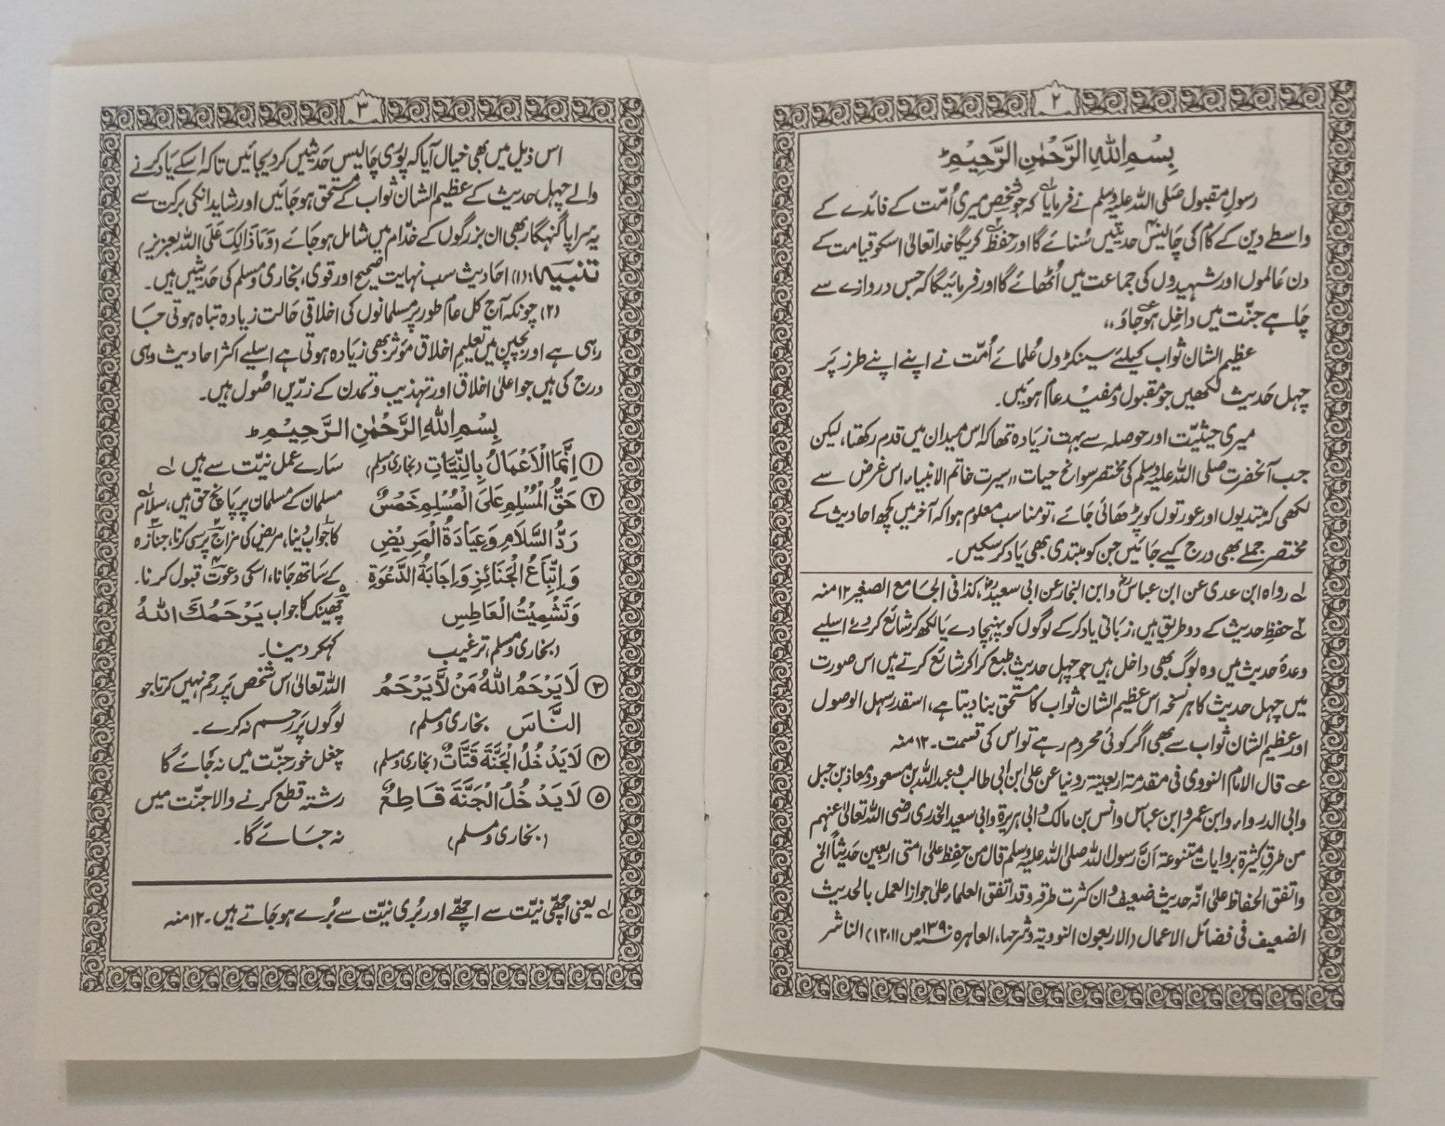 ۲
بِسْمِ اللّٰهِ الرَّحْمٰنِ الرَّحِيْمِ
رسولِ مقبول صَلی اللہ علیہ وسلم نے فرمایا کہ جو شخص میری اُمّت کے فائدے کے
واسطے دین کے کام کی چالیس حدیثیں سُنائے گا اور حفظ کریگا خدا تعالیٰ اسکو قیامت کے
دن عالموں اور شہیدوں کی جماعت میں اُٹھائے گا اور فرمائیگا کہ جس دروازے سے
چاہے جنّت میں داخل ہو جاؤ،،
عظیم الشان ثواب کیلئے سینکڑوں عُلمائے اُمّت نے اپنے اپنے طرز پَر
چہل حَدیث لکھیں جو مقبول و مفید عام ہوئیں۔
میری حیثیّت اور حوصلہ سے بہت زیادہ تھا کہ اس میدان میں قدم رکھتا، لیکن
جب آنحضرت صلی اللہ علیہ وسلم کی مختصر سوانح حیات ،،سیرت خاتم الانبیاء، اس غرض سے
لکھی کہ مبتدیوں اور عورتوں کو پڑھائی جائے، تو مناسب معلوم ہوا کہ آخر میں کچھ احادیث کے
مختصر جملے بھی درج کیے جائیں جن کو مبتدی بھی یاد کر سکیں۔
لہ رواہ ابن عدی عن ابن عباس وابن النجار عن ابی سعید، کذا فی الجامع الصغیر ۱۲ منہ
حفظِ حدیث کے دو طریق ہیں، زبانی یاد کر کے لوگوں کو پہنچا دے یا لکھ کر شائع کر دے اسلیے
وعدۂ حدیث میں وہ لوگ بھی داخل ہیں جو چہل حدیث طبع کرا کر شائع کرتے ہیں اس صورت
میں چہل حدیث کا ہر نسخہ اس عظیم الشان ثواب کا مستحق بنا دیتا ہے، اسقدر سہل الوصول
اور عظیم الشان ثواب سے بھی اگر کوئی محروم رہے تو اس کی قسمت۔ ۱۲ منہ
قال الامام النووی فی مقدمۃ اربعینہ روینا عن علی ابن ابی طالب وعبد اللہ بن مسعود ومعاذ بن جبل
وابی الدرداء وابن عمر وابن عباس وانس بن مالک وابی ہریرۃ وابی سعید الخدری رضی اللہ تعالیٰ عنہم
من طرق کثیرۃ بروایات متنوعۃ اَنَّ رسول اللہ صلی اللہ علیہ وسلم قال من حفظ علیٰ امتی اربعین حدیثاً الخ
واتفق الحفاظ علیٰ انہ حدیث ضعیف وان کثرت طرقہ وقد اتفق العلماء علیٰ جواز العمل بالحدیث
الضعیف فی فضائل الاعمال (الاربعون النوویۃ وشرحہا، القاہرہ ۱۳۹۰ ص ۱۲،۱۱) الناشر
۳
اس ذیل میں بھی خیال آیا کہ پُوری چالیس حَدیثیں کر دیجائیں تاکہ اسکے یاد کرنے
والے چہل حدیث کے عظیم الشان ثواب کے مستحق ہو جائیں اور شاید انکی برکت سے
یہ سراپا گنہگار بھی ان بزرگوں کے خدّام میں شامل ہو جائے (وَمَا ذَالِكَ عَلَى اللّٰهِ بِعَزِيْزٍ)
تنبیہ: (۱) احادیث سب نہایت صحیح اور قوی، بخاری و مسلم کی حَدیثیں ہیں۔
(۲) چونکہ آج کل عام طور پر مسلمانوں کی اخلاقی حالت زیادہ تباہ ہوتی جا
رہی ہے اور بچپن میں تعلیمِ اخلاق مؤثر بھی زیادہ ہوتی ہے اسلیے اکثر احادیث وہی
درج کی ہیں جو اعلیٰ اخلاق اور تہذیب و تمدن کے زرّیں اصُول ہیں۔
بِسْمِ اللّٰهِ الرَّحْمٰنِ الرَّحِيْمِ
① اِنَّمَا الْاَعْمَالُ بِالنِّيَّاتِ (بخاری و مسلم) سَارے عمل نیّت سے ہیں لہ
② حَقُّ الْمُسْلِمِ عَلَى الْمُسْلِمِ خَمْسٌ مسلمان کے مسلمان پر پانچ حق ہیں، سلام
رَدُّ السَّلَامِ وَعِيَادَةُ الْمَرِيْضِ کا جواب دینا، مریض کی مزاج پُرسی کرنا، جنازہ
وَاِتِّبَاعُ الْجَنَائِزِ وَاِجَابَةُ الدَّعْوَةِ کے ساتھ جانا، اسکی دعوت قبول کرنا۔
وَتَشْمِيْتُ الْعَاطِسِ چھینک کا جواب يَرْحَمُكَ اللّٰهُ
(بخاری و مسلم، ترغیب کہکر دینا۔
③ لَا يَرْحَمُ اللّٰهُ مَنْ لَّا يَرْحَمُ اللہ تعالیٰ اس شخص پَر رحم نہیں کرتا جو
النَّاسَ بخاری و مسلم) لوگوں پَر رحم نہ کرے۔
④ لَا يَدْخُلُ الْجَنَّةَ قَتَّاتٌ (بخاری و مسلم) چغل خور جنّت میں نہ جَائے گا
⑤ لَا يَدْخُلُ الْجَنَّةَ قَاطِعٌ رشتہ قطع کرنے والا جنّت میں
(بخاری و مسلم) نہ جَائے گا۔
لہ یعنی اچھّی نیّت سے اچھّے اور بُری نیّت سے بُرے ہو جاتے ہیں۔ ۱۲ منہ